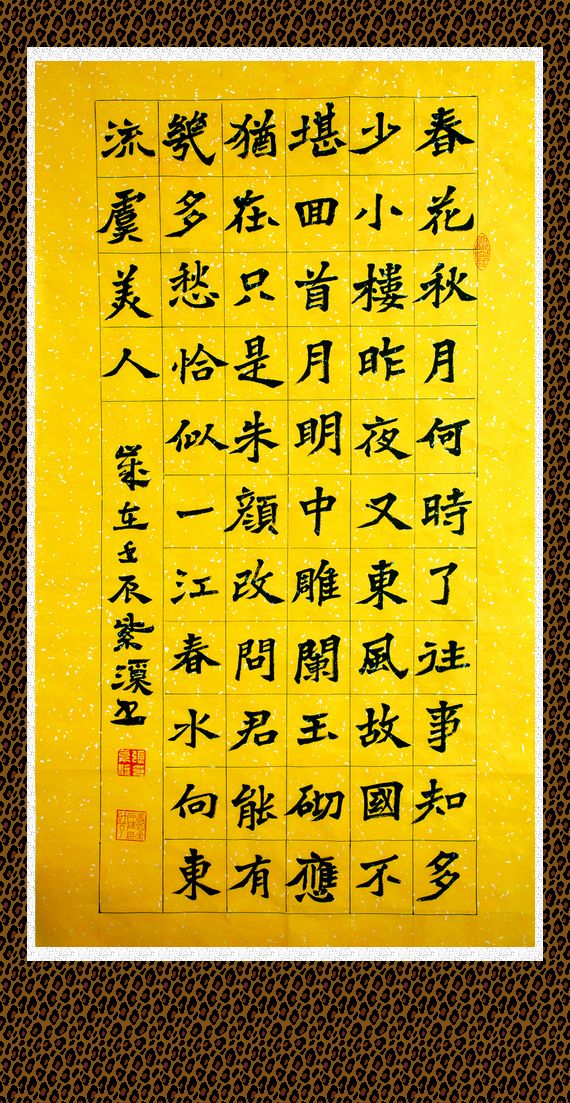 春花秋月何時了往事知多
少小樓昨夜又東風故國不
堪回首月明中雕闌玉砌應
猶在只是朱顏改問君能有
幾多愁恰似一江春水向東
流虞美人
歲在壬辰紫溪書